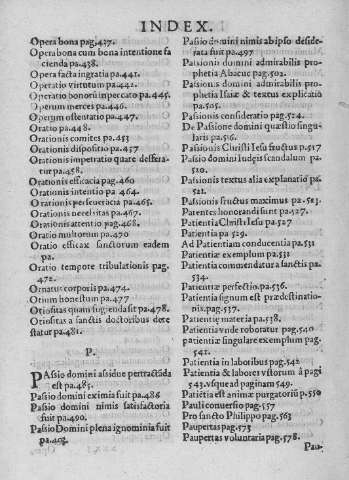 INDEX.
Opera bona pag.437.
Opera bona cum bona intentione fa
cienda pa.438.
Opera facta in gratia pa.441.
Operatio virtutum pa.442.
Operatio bonorū in peccato pa.445.
Operum merces pa.446.
Operum ostentatio pa.447.
Oratio pa.448.
Orationis comites pa.453
Orationis dispositio pa.457
Orationis impetratio quare differa-
tur pa.458.
Orationis efficacia pag.460
Orationis intentio pa.464.
Orationis perseuerācia pa.465.
Orationis necessitas pa.467.
Orationis attentio pag.468.
Oratio multorum pa.470
Oratio efficax sanctorum eadem
pa.
Oratio tempore tribulationis pag.
472.
Ornatus corporis pa.474.
Otium honestum pa.477
Otiositas quam fugienda sit pa.478.
Otiositas a sanctis doctoribus dete
statur pa.481.
P.
PAssio domini assidue pertractāda
est pa.485.
Passio domini eximia fuit pa.488
Passio domini nimis satisfactoria
fuit pa.490.
Passio Domini plena ignominia fuit
pa.493.
Passio domini nimis ab ipso deside-
rata fuit pa.497
Passionis domini admirabilis pro-
phetia Abacuc pag.502.
Passionis domini admirabilis pro-
phetia Isaiæ & textus explicatio
pa.505.
Passionis consideratio pag.514.
De Passione domini quæstio singu-
laris pa.516.
Passionis Christi Iesu fructus p.517
Passio domini Iudeis scandalum pa.
520.
Passionis textus alia explanatio pa.
521.
Passionis fructus maximus pa.523.
Parentes honorandi sunt pa.527.
Patientia Christi Iesu pa.527
Patientia pa.529.
Ad Patientiam conducentia pa.531
Patientiæ exemplum pa.531
Patientia commendatur a sanctis pa.
534.
Patientiæ perfectio pa.536.
Patientia signum est prædestinatio-
nis pag.537.
Patientiæ materia pa.538.
Patientia vnde roboratur pag.540
patientiæ singulare exemplum pag.
541.
Patientia in laboribus pag.542
Patientia & labores vsforum a pagi
543. vsque ad paginam 549.
Patiētia est animæ purgatoriū p.550
Pauli conuersio pag.557
Pro sancto Philippo pag.563
Paupertas pag.573
Paupertas voluntaria pag.578.
Pau-